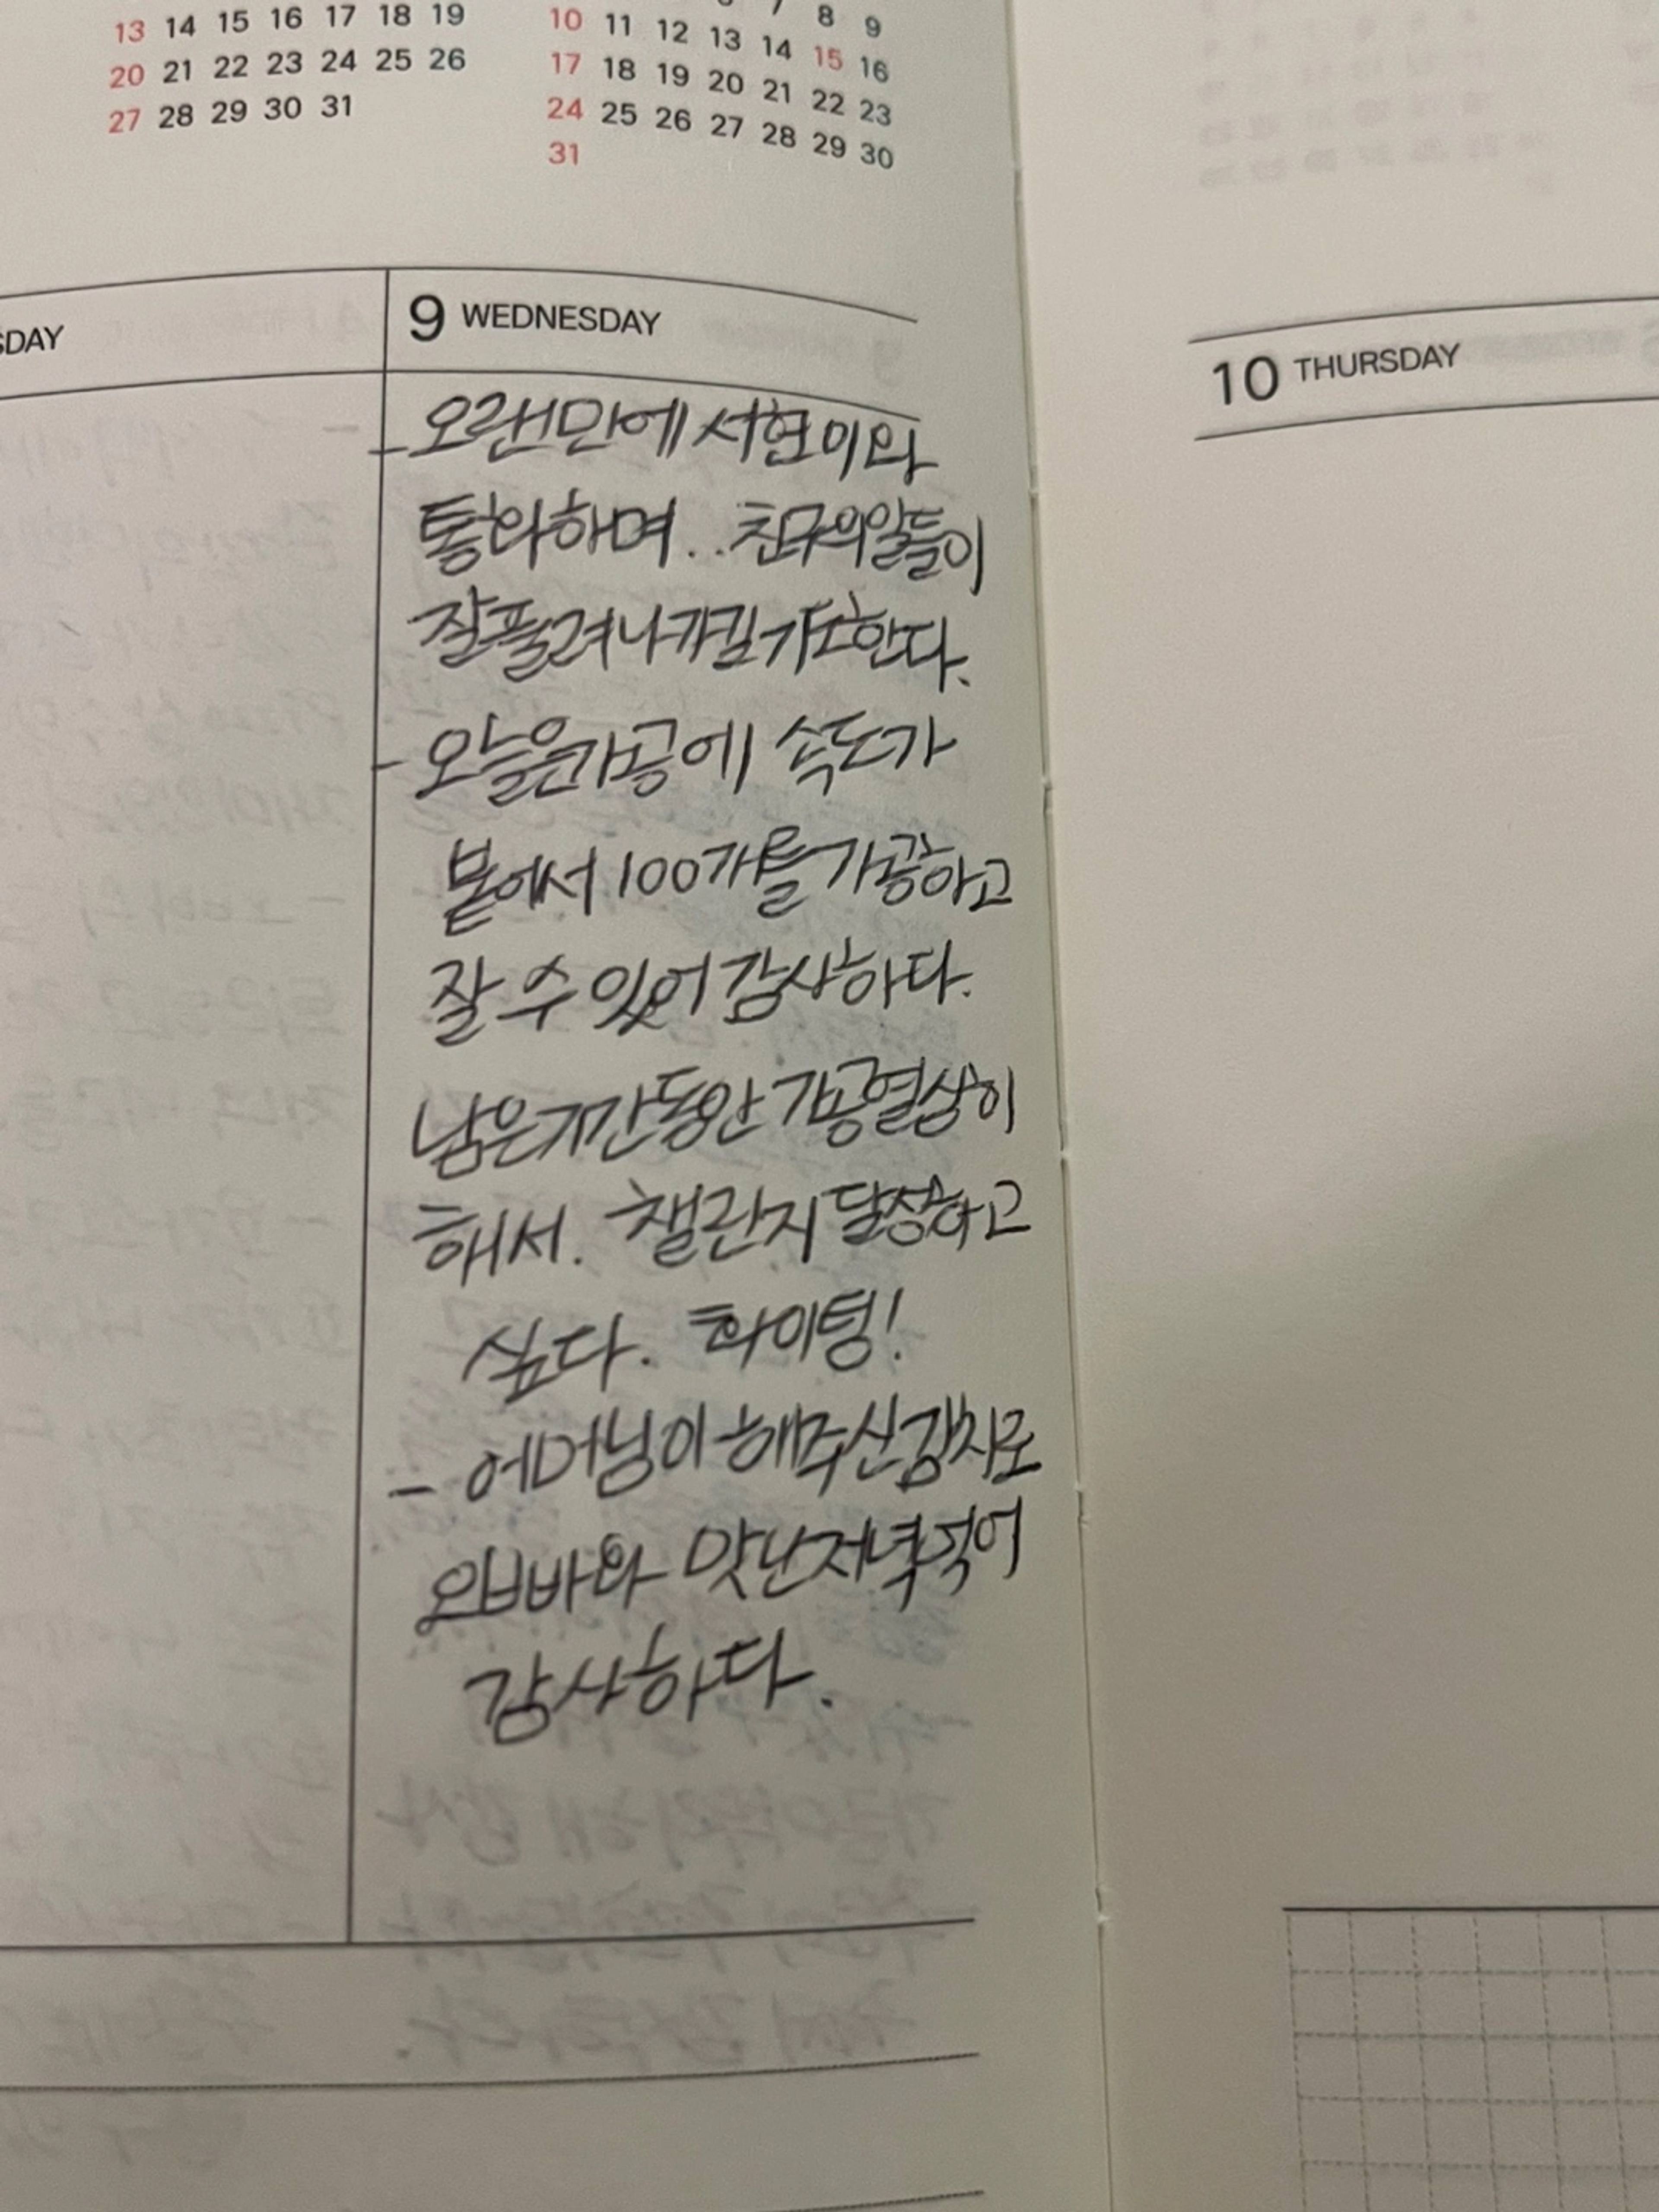 13 14 15 16 17 18 19
20 21 22 23 24 25 26
27 28 29 30 31
7 8 9
10 11 12 13 14 15 16
17 18 19 20 21 22 23
24 25 26 27 28 29 30
31
SDAY
9 WEDNESDAY
- 오랜만에 서현이와
통화하며.. 친구의 일들이
잘 풀려나가길 기도한다.
- 오늘은 가공에 속도가
붙어서 100개를 가공하고
잘 수 있어 감사하다.
남은 기간동안 가공 열심히
해서. 챌린지 달성하고
싶다. 화이팅!
- 어머님이 해주신 감자로
오빠와 맛난 저녁 먹어
감사하다.
10 THURSDAY